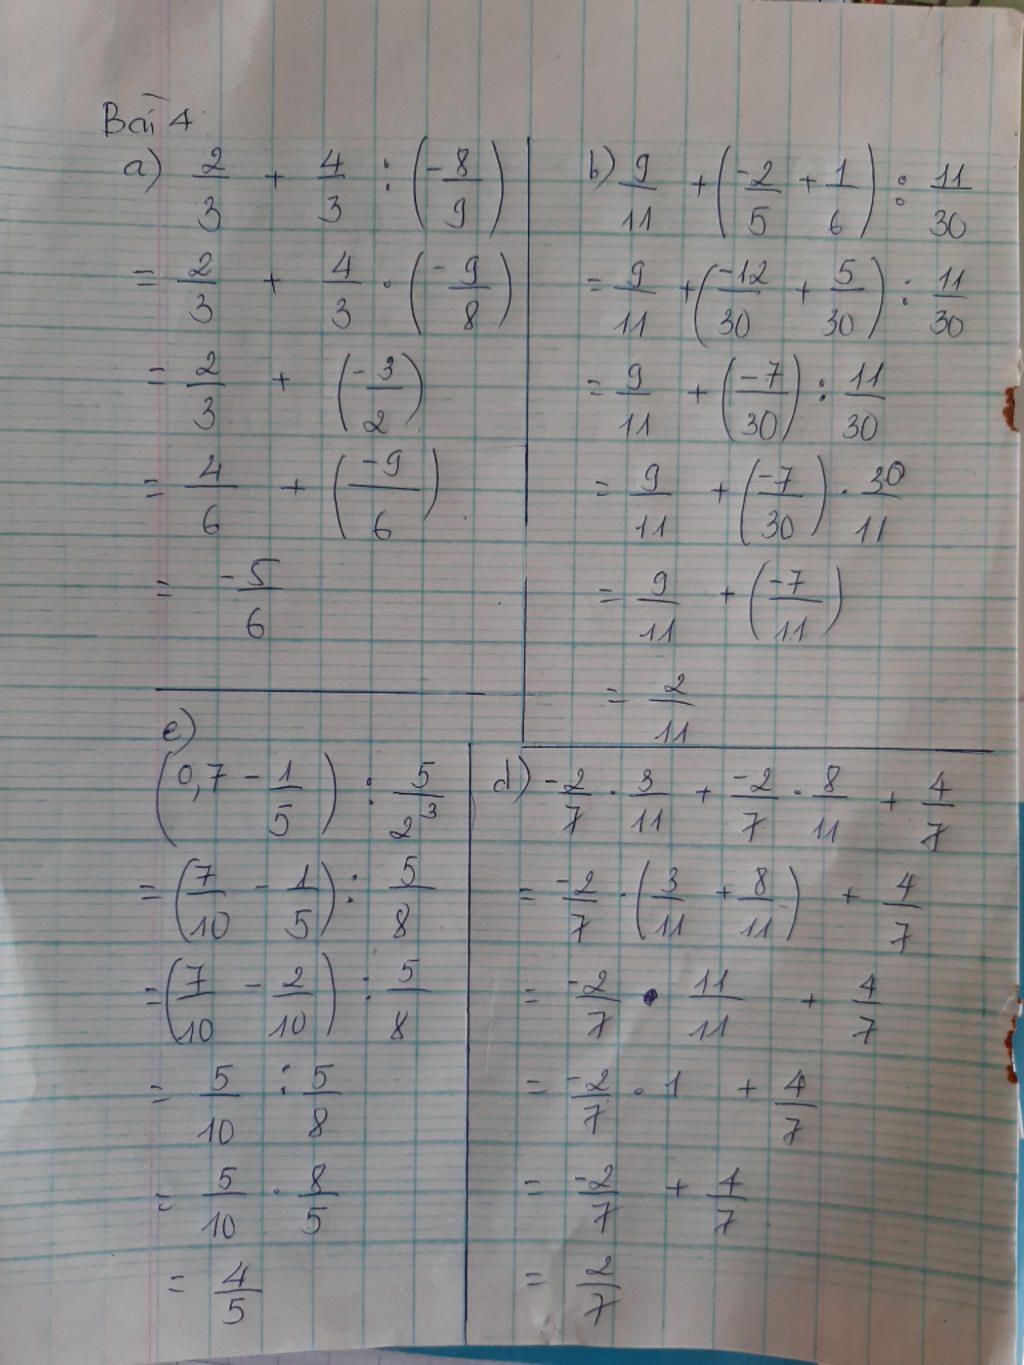 Bài 4
a) 2/3 + 4/3 : (-8/9)
= 2/3 + 4/3 . (-9/8)
= 2/3 + (-3/2)
= 4/6 + (-9/6)
= -5/6
b) 9/11 + (-2/5 + 1/6) : 11/30
= 9/11 + (-12/30 + 5/30) : 11/30
= 9/11 + (-7/30) : 11/30
= 9/11 + (-7/30) . 30/11
= 9/11 + (-7/11)
= 2/11
c)
(0,7 - 1/5) : 5/2³
= (7/10 - 1/5) : 5/8
= (7/10 - 2/10) : 5/8
= 5/10 : 5/8
= 5/10 . 8/5
= 4/5
d) -2/7 . 3/11 + -2/7 . 8/11 + 4/7
= -2/7 . (3/11 + 8/11) + 4/7
= -2/7 . 11/11 + 4/7
= -2/7 . 1 + 4/7
= -2/7 + 4/7
= 2/7